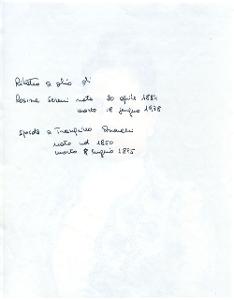 Ritratto a olio di
Rosina Sereni nata 20 aprile 1884
morta 18 giugno 1978
sposata a Tranquillo
nato nel 1850
morto 8 luglio 1895